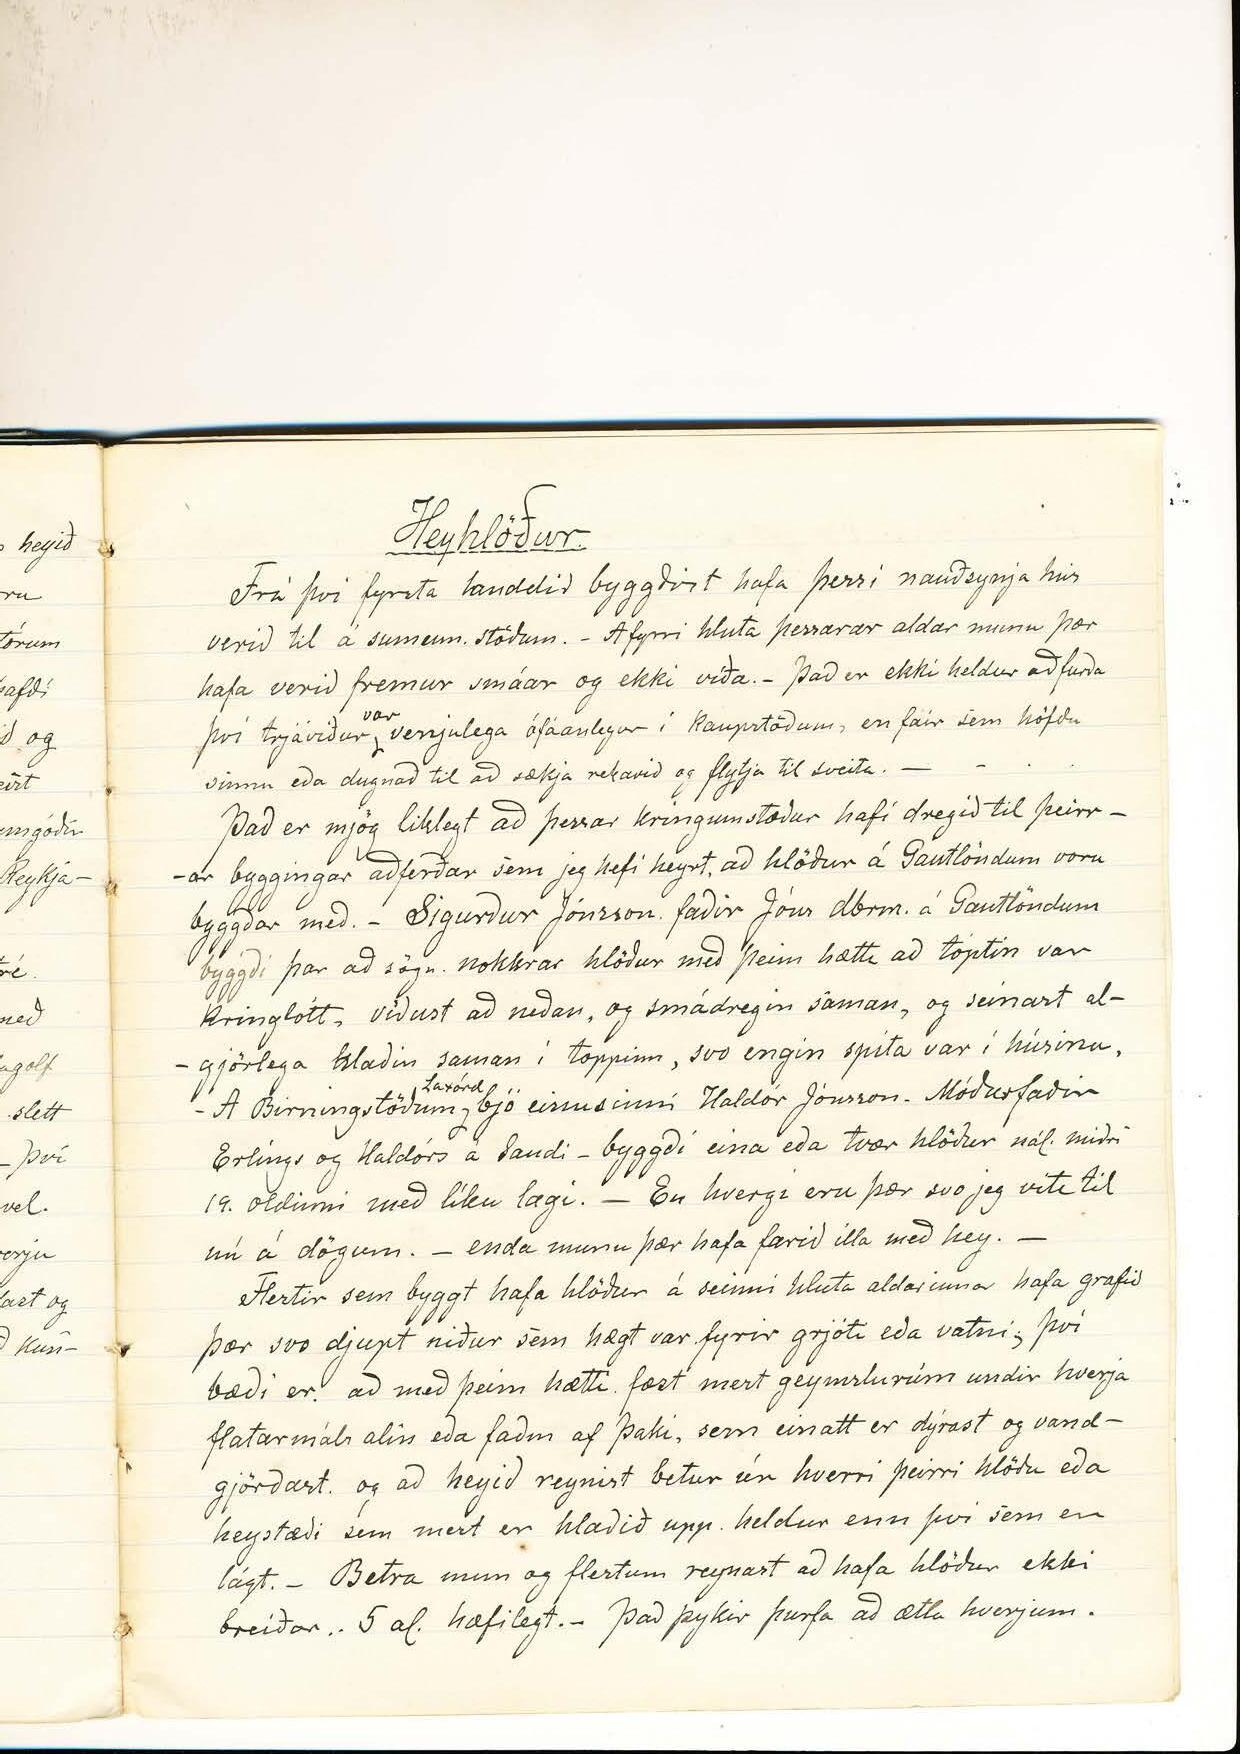 heyið
ru
tórum
hafði
ið og
eist
umgóðir
Reykja-
tré.
með
agolf
slett
- því
vel.
verju
fast og
ð kun-
Heyhlöður.
Frá því fyrsta landið byggðist hafa þessi nauðsynja hús
verið til á sumum stöðum. - A fyrri hluta þessarar aldar munu þær
hafa verið fremur smáar og ekki viða. - Það er ekki heldur að furða
því trjáviður var venjulega ófáanlegur í kaupstöðum, en fáir sem höfðu
sinnu eða dugnað til að sækja rekavið og flytja til sveita. —
Það er mjög liklegt að þessar kringumstæður hafi dregið til þeirr-
-ar byggingar aðferðar sem jeg hefi heyrt, að hlöður á Gautlöndum voru
byggðar með. - Sigurður Jónsson. faðir Jóns dbrm. á Gautlöndum
byggði þar að sögn. nokkrar hlöður með þeim hætti að tóptin var
kringlótt, viðust að neðan, og smádregin saman, og seinast al-
-gjörlega hlaðin saman í toppinn, svo engin spita var í húsinu.
- A Birningstöðum, Laxárd bjó einusinni Haldór Jónsson. Móðurfaðir
Erlings og Haldórs á Sandi - byggði eina eða tvær hlöður nál. miðri
19. oldinni með líku lagi. — En hvergi eru þær svo jeg viti til
nú á dögum. - enda munu þær hafa farið illa með hey. —
Flestir sem byggt hafa hlöður á seinni hluta aldarinnar hafa grafið
þær svo djupt niður sem hægt var fyrir grjóti eða vatni; því
bæði er. að með þeim hætti fæst mest geymslurúm undir hverja
flatarmáls alin eða faðm af þaki, sem einatt er dýrast og vand-
gjörðast. og að heyið reynist betur úr hverri þeirri hlöðu eða
heystæði sem mest er hlaðið upp. heldur enn því sem er
lágt. - Betra mun og flestum reynast að hafa hlöður ekki
breiðar.. 5 al. hæfilegt. - Það þykir þurfa að ætla hverjum.